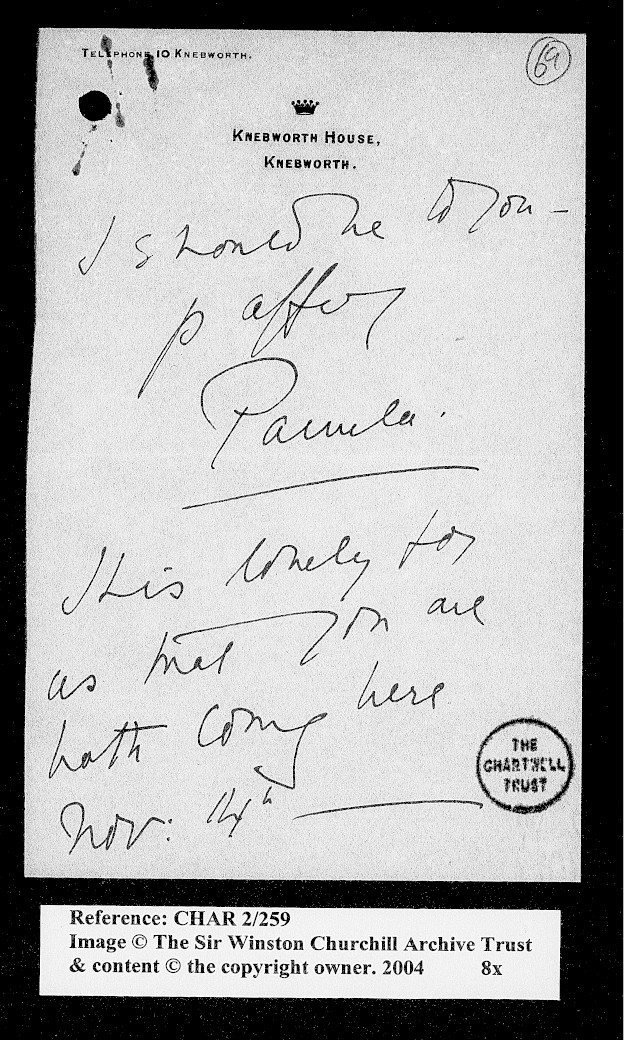 TELEPHONE 10 KNEBWORTH.
69
KNEBWORTH HOUSE,
KNEBWORTH.
I should be to you –
yr affly
Pamela.
It is lovely for
us that you are
both coming here
Nov: 14th
THE
CHARTWELL
TRUST
Reference: CHAR 2/259
Image © The Sir Winston Churchill Archive Trust
& content © the copyright owner. 2004 8x